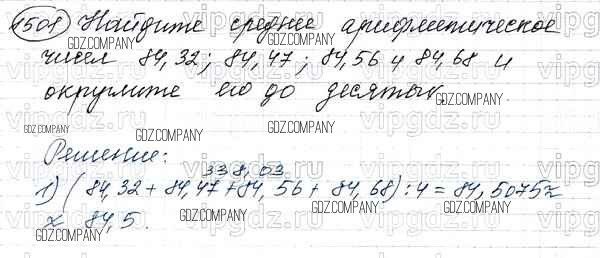 1501 Найдите среднее арифметическое
чисел 84,32; 84,47; 84,56 и 84,68 и
округлите его до десятых.
Решение:
338,03
1) (84,32 + 84,47 + 84,56 + 84,68) : 4 = 84,5075 ≈
≈ 84,5.
GDZ.COMPANY
vipgdz.ru